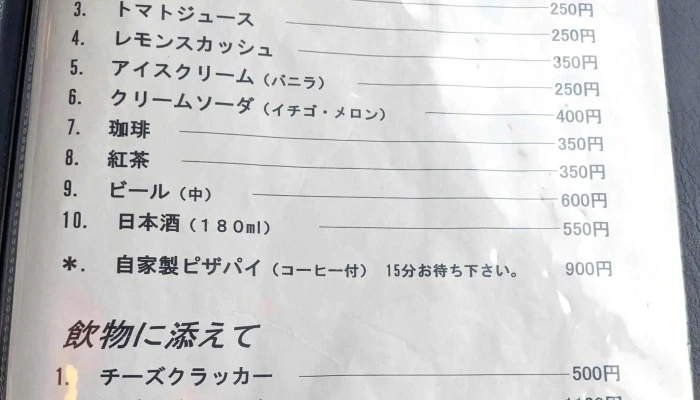 250円
3. トマトジュース 250円
4. レモンスカッシュ 350円
5. アイスクリーム（バニラ） 250円
6. クリームソーダ（イチゴ・メロン） 400円
7. 珈琲 350円
8. 紅茶 350円
9. ビール（中） 600円
10. 日本酒（１８０ml） 550円
＊. 自家製ピザパイ（コーヒー付） 15分お待ち下さい。 900円
飲物に添えて
1. チーズクラッカー 500円